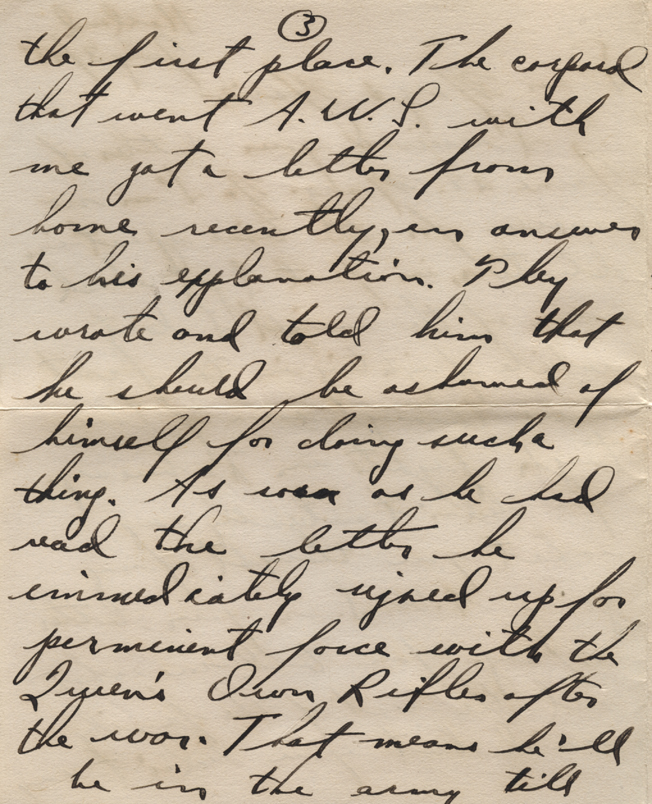 3
the first place. The corporal
that went A.W.L. with
me got a letter from
home recently, in answer
to his explanation. They
wrote and told him that
he should be ashamed of
himself for doing such a
thing. As soon as he had
read the letter he
immediately signed up for
perminent force with the
Queen's Own Rifles after
the war. That means he'll
be in the army till